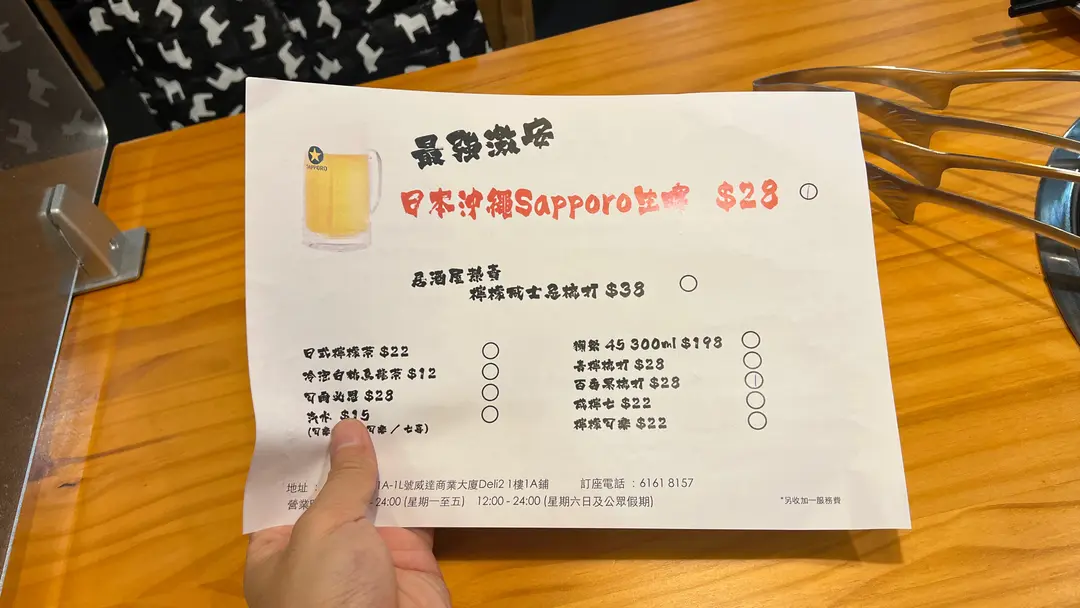 SAPPORO
最強激安
日本沖繩Sapporo生啤 $28
居酒屋熱賣
檸檬威士忌梳打 $38
日式檸檬茶 $22
冷泡白桃烏龍茶 $12
可爾必思 $28
汽水 $15
(可樂 可樂 / 七喜)
獺祭 45 300ml $198
青檸梳打 $28
百香果梳打 $28
咸檸七 $22
檸檬可樂 $22
地址 : 1A-1L號威達商業大廈Deli2 1樓1A鋪
訂座電話 : 6161 8157
營業 -24:00 (星期一至五) 12:00 - 24:00 (星期六日及公眾假期)
*另收加一服務費